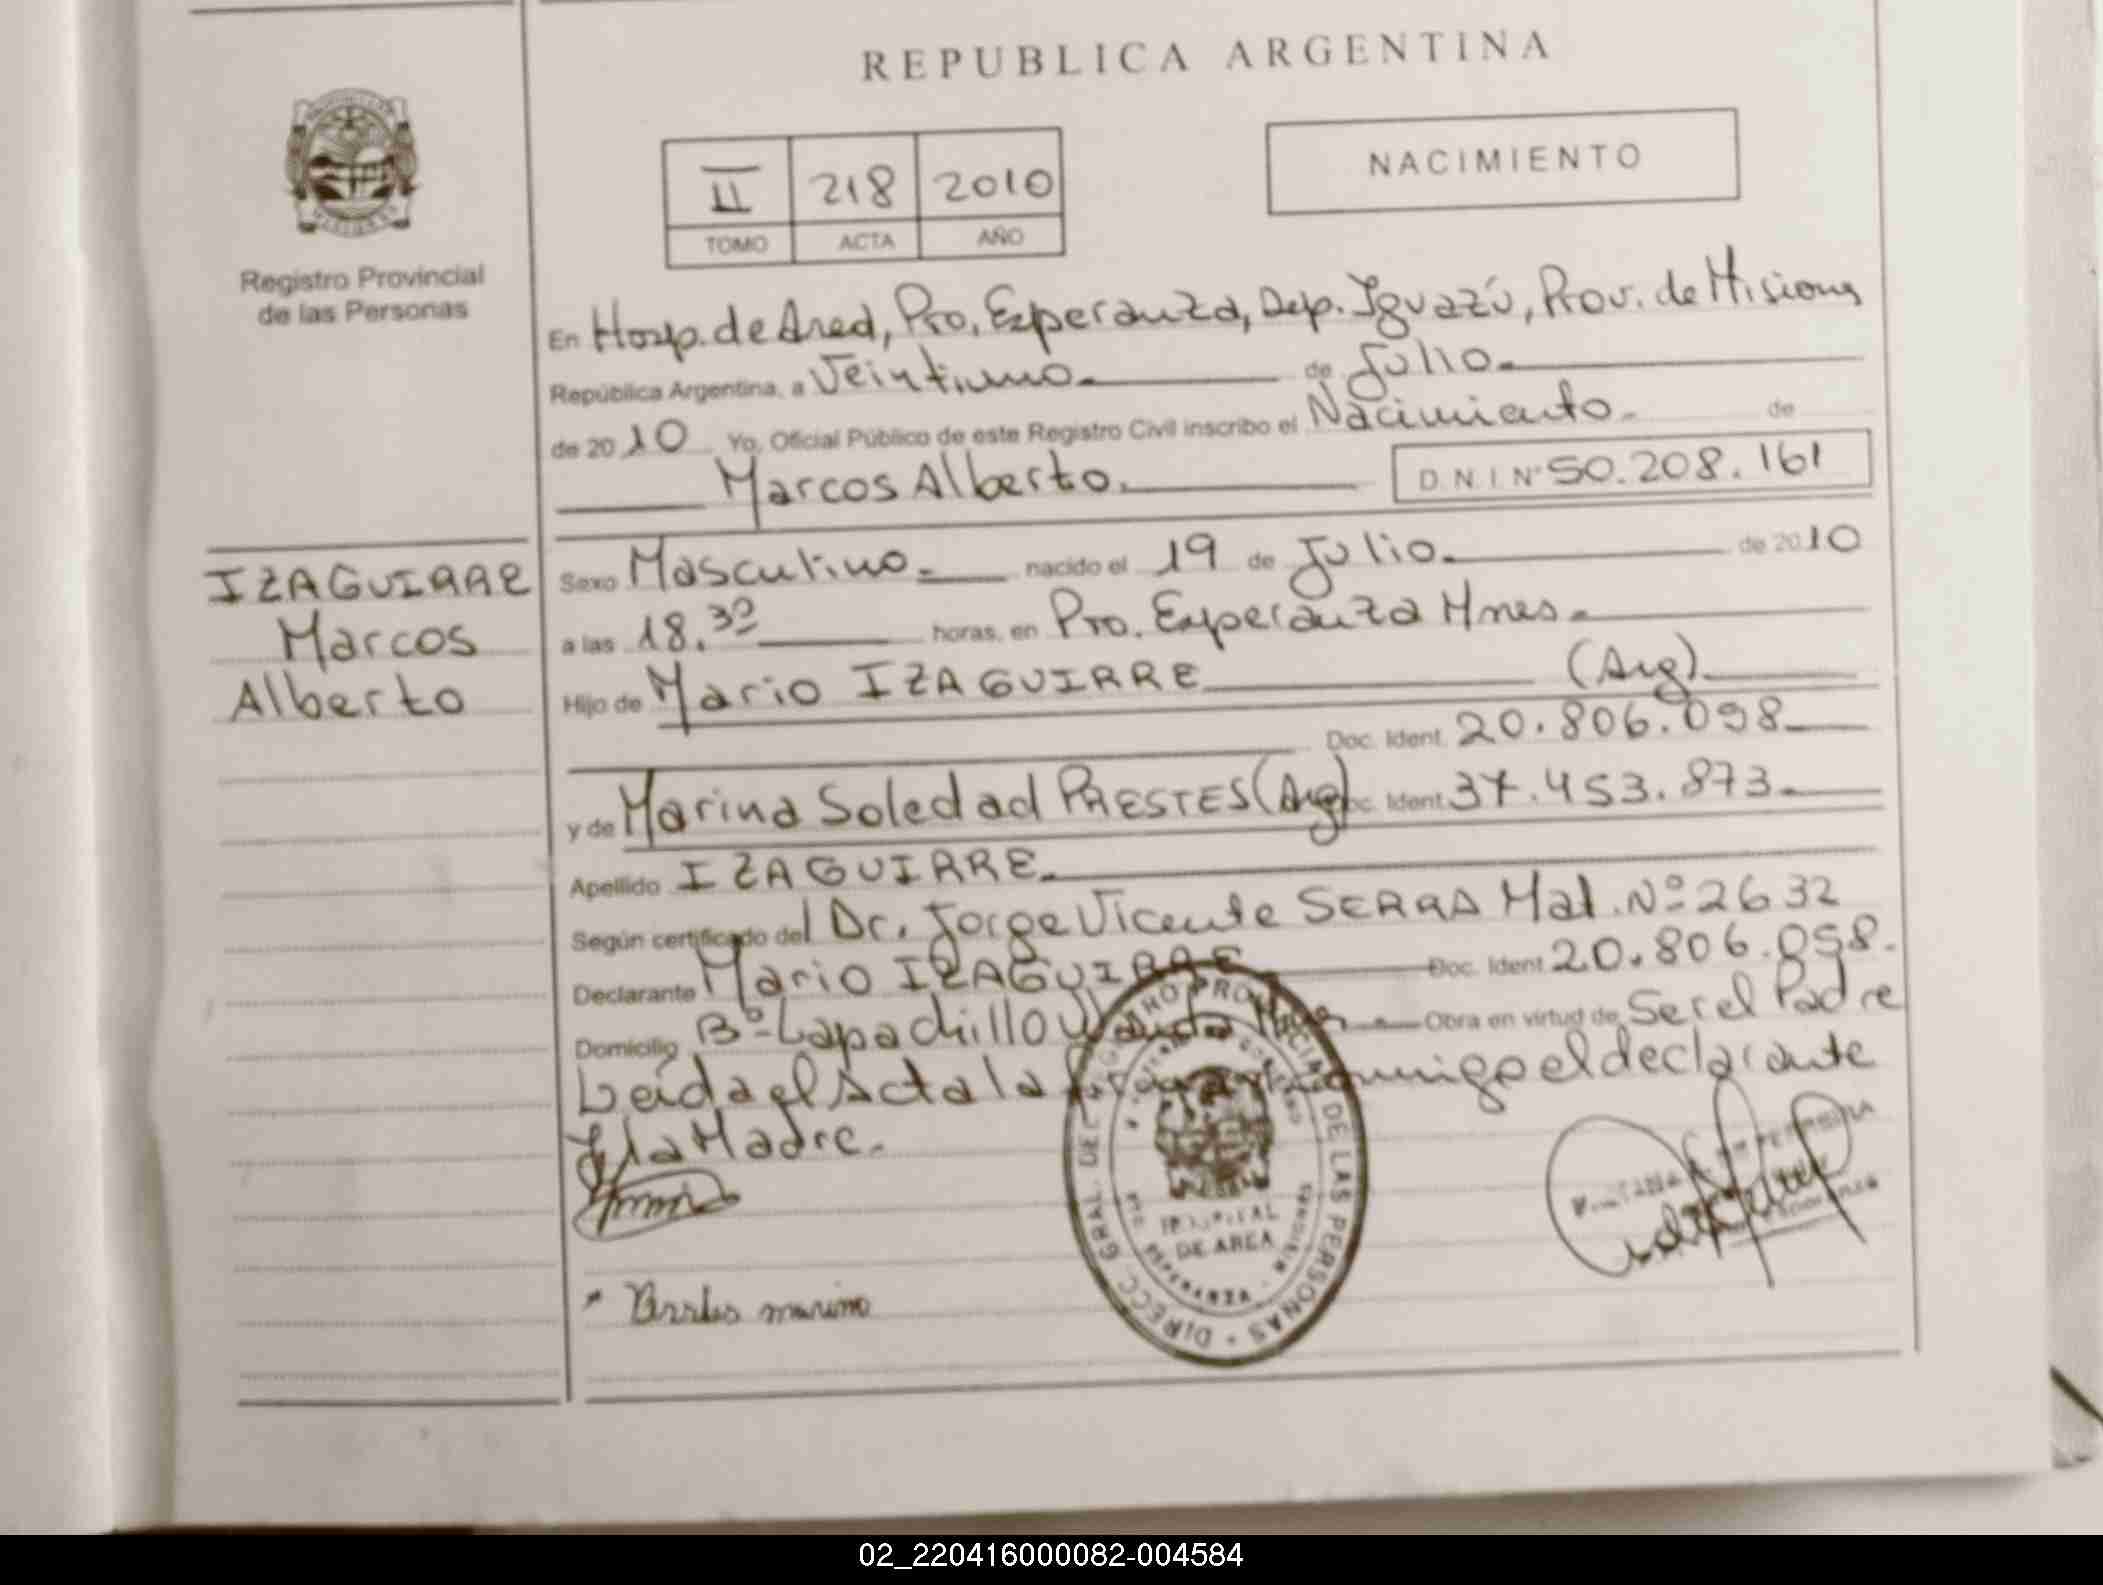 REPUBLICA ARGENTINA
Registro Provincial
de las Personas
II 218 2010
TOMO ACTA AÑO
NACIMIENTO
En Hosp. de Area, Pto. Esperanza, Dep. Iguazú, Prov. de Misiones
República Argentina, a Veintiuno.- de Julio.-
de 2010 Yo, Oficial Público de este Registro Civil inscribo el Nacimiento.- de
Marcos Alberto.- D N I Nº 50.208.161
IZAGUIRRE
Marcos
Alberto
Sexo Masculino.- nacido el 19 de Julio.- de 2010
a las 18.30 horas, en Pto. Esperanza Mnes.-
Hijo de Mario IZAGUIRRE (Arg)
Doc. Ident. 20.806.098
y de Marina Soledad PRESTES (Arg) Doc. Ident. 37.453.873.-
Apellido IZAGUIRRE.-
Según certificado del Dr. Jorge Vicente SERRA Mat. Nº 2632
Declarante Mario IZAGUIRRE Doc. Ident. 20.806.098.
Domicilio Bº- Lapachillo Wanda Mnes.- Obra en virtud de Ser el Padre
Leida el Acta la conmigo el declarante
y la Madre.-
DIRECC. GRAL. DEL REGISTRO PROVINCIAL DE LAS PERSONAS
HOSPITAL
DE AREA
02_220416000082-004584